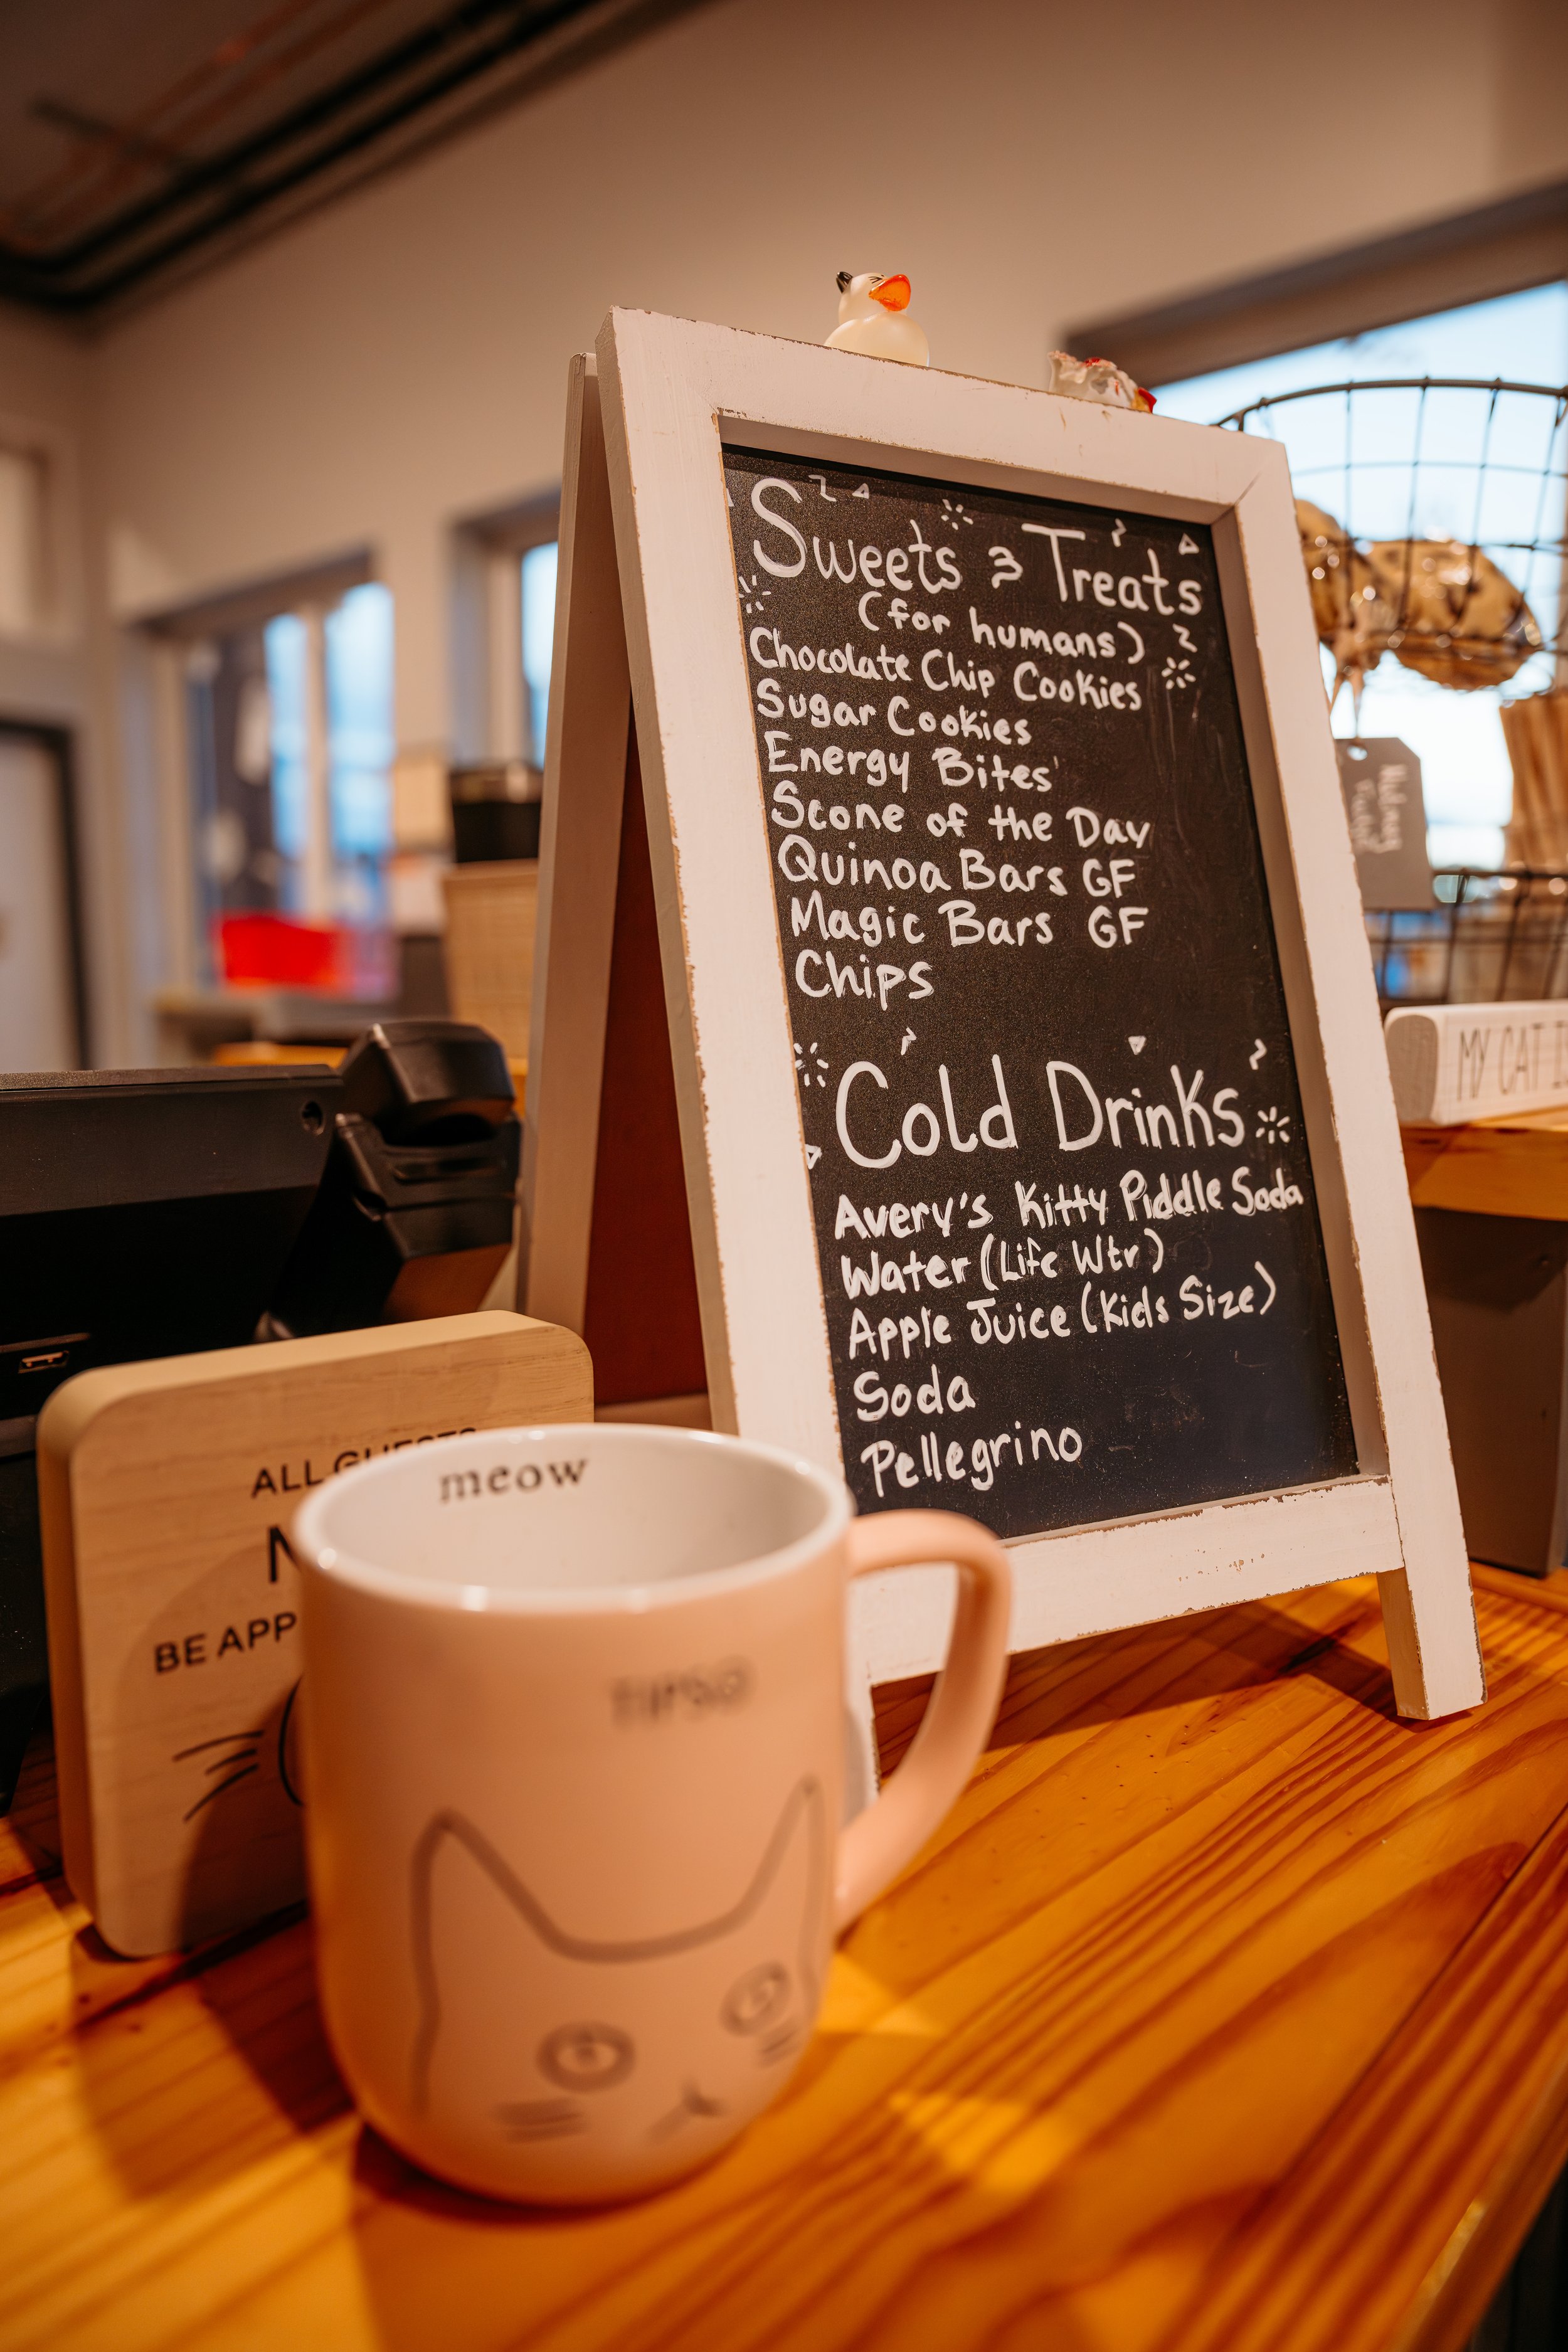 Sweets & Treats
(for humans)
Chocolate Chip Cookies
Sugar Cookies
Energy Bites
Scone of the Day
Quinoa Bars GF
Magic Bars GF
Chips
Cold Drinks
Avery's Kitty Piddle Soda
Water (Life Wtr)
Apple Juice (Kids Size)
Soda
Pellegrino
MY CAT
ALL GUESTS
BE APP
meow
TIPS